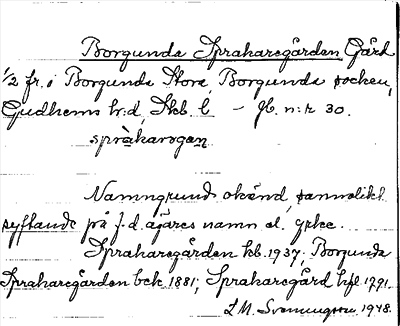 Borgunda Spraharegården Gård
1/2 fr. i Borgunda Stora, Borgunda socken,
Gudhems hr:d, Skb. l. – Jb. n:r 30.
språkarogan
Namngrund okänd, sannolikt
syftande på f.d. ägares namn el. yrke.
Spraharegården kb. 1937; Borgunda
Spraharegården bek. 1881; Spraharegård hfl 1791
L.M. Svenungsson 1948.